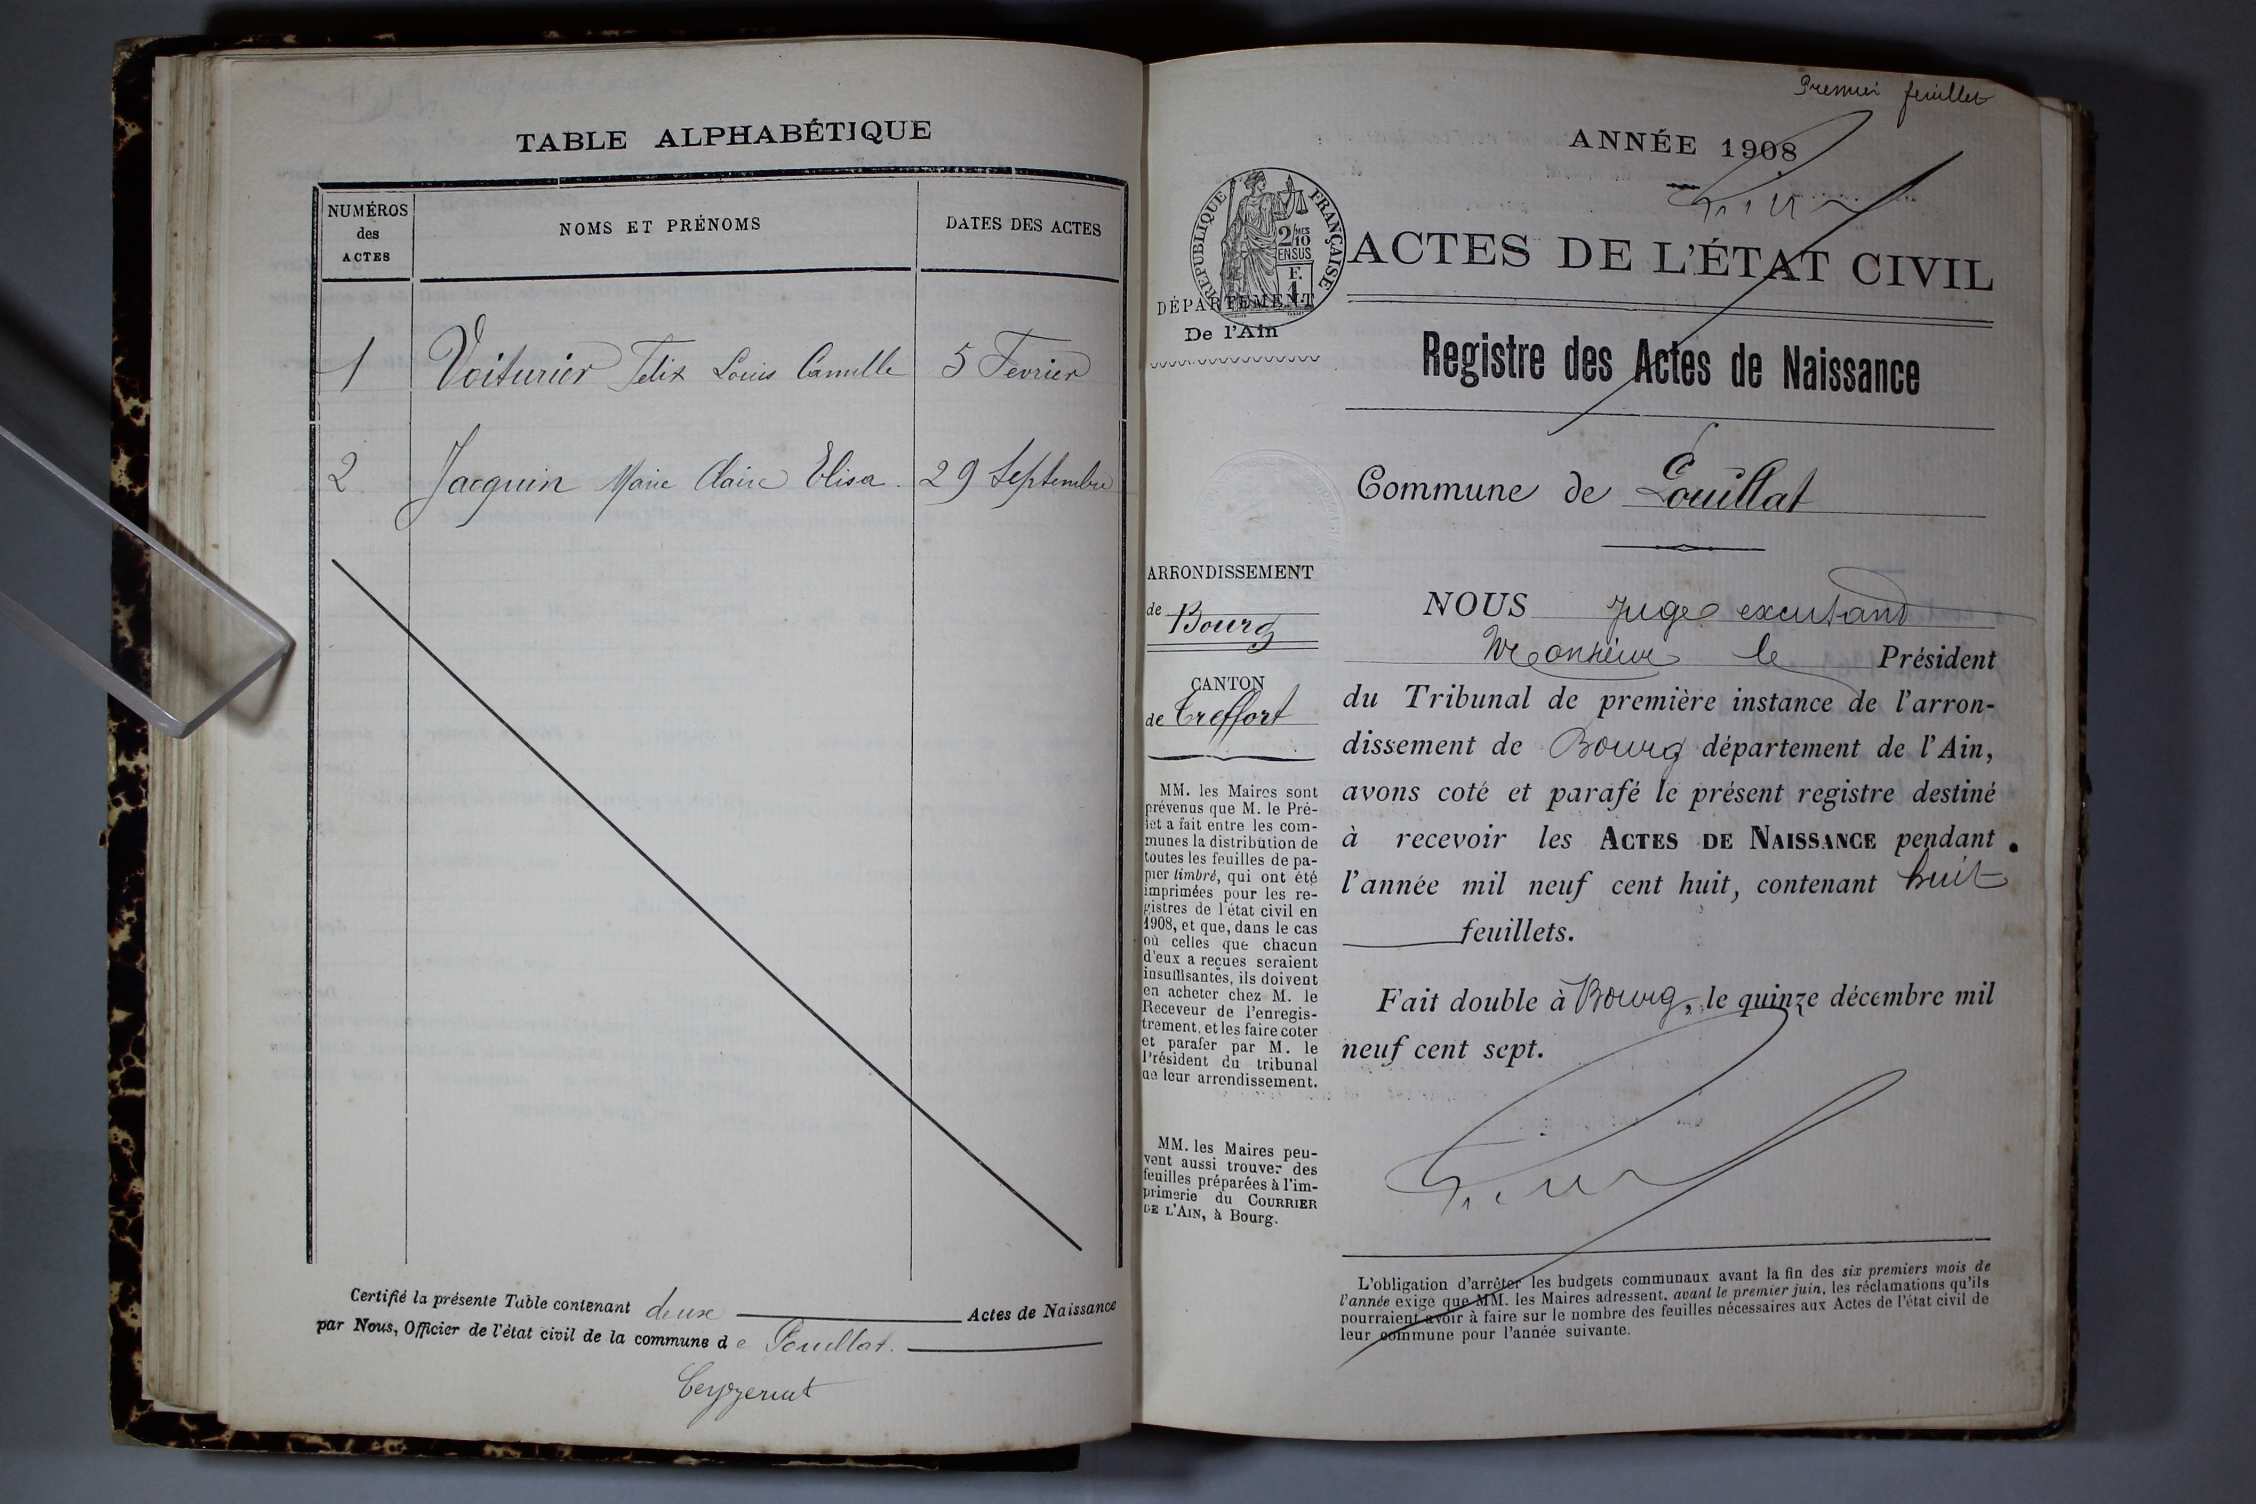 TABLE ALPHABÉTIQUE
NUMÉROS
des
ACTES
NOMS ET PRÉNOMS
DATES DES ACTES
1 Voiturier Felix Louis Camille 5 Fevrier
2 Jacquin Marie Claire Elisa. 29 Septembre
Certifié la présente Table contenant deux Actes de Naissance
par Nous, Officier de l'état civil de la commune de Pouillat.
Ceyzeriat
Premier feuillet
ANNÉE 1908
RÉPUBLIQUE FRANÇAISE
2/10 MES
EN SUS
F.
1
ACTES DE L'ÉTAT CIVIL
DÉPARTEMENT
De l'Ain
Registre des Actes de Naissance
Commune de Pouillat
ARRONDISSEMENT
de Bourg
CANTON
de Treffort
MM. les Maires sont
prévenus que M. le Pré-
fet a fait entre les com-
munes la distribution de
toutes les feuilles de pa-
pier timbré, qui ont été
imprimées pour les re-
gistres de l'état civil en
1908, et que, dans le cas
où celles que chacun
d'eux a reçues seraient
insuffisantes, ils doivent
en acheter chez M. le
Receveur de l'enregis-
trement, et les faire coter
et parafer par M. le
Président du tribunal
de leur arrondissement.
MM. les Maires peu-
vent aussi trouver des
feuilles préparées à l'im-
primerie du COURRIER
DE L'AIN, à Bourg.
NOUS Juge
Monsieur le Président
du Tribunal de première instance de l'arron-
dissement de Bourg département de l'Ain,
avons coté et parafé le présent registre destiné
à recevoir les ACTES DE NAISSANCE pendant
l'année mil neuf cent huit, contenant huit
feuillets.
Fait double à Bourg, le quinze décembre mil
neuf cent sept.
L'obligation d'arrêter les budgets communaux avant la fin des six premiers mois de
l'année exige que MM. les Maires adressent, avant le premier juin, les réclamations qu'ils
pourraient avoir à faire sur le nombre des feuilles nécessaires aux Actes de l'état civil de
leur commune pour l'année suivante.